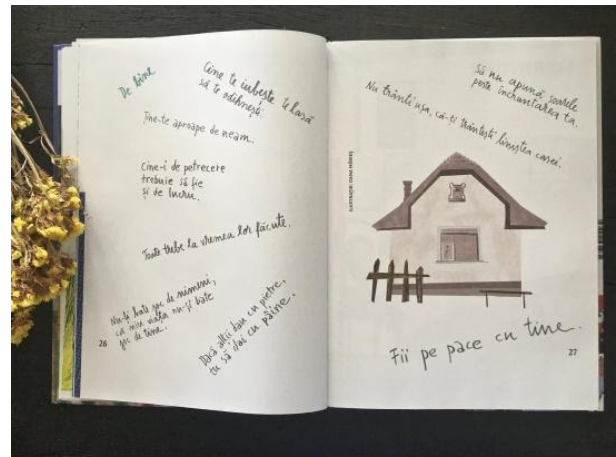 De bine
Cine te iubește te lasă
să te odihnești.
Ține-te aproape de neam.
Cine-i de petrecere
trebuie să fie
și de lucru.
Toate trebe la vremea lor făcute.
Nu-ți bate joc de nimeni,
ca nici viața nu-și bate
joc de tine.
Dacă alții dau cu pietre,
tu să dai cu pâine.
26
Să nu apună soarele
peste încruntarea ta.
Nu trânti ușa, că-ți trântești liniștea casei.
Fii pe pace cu tine.
27